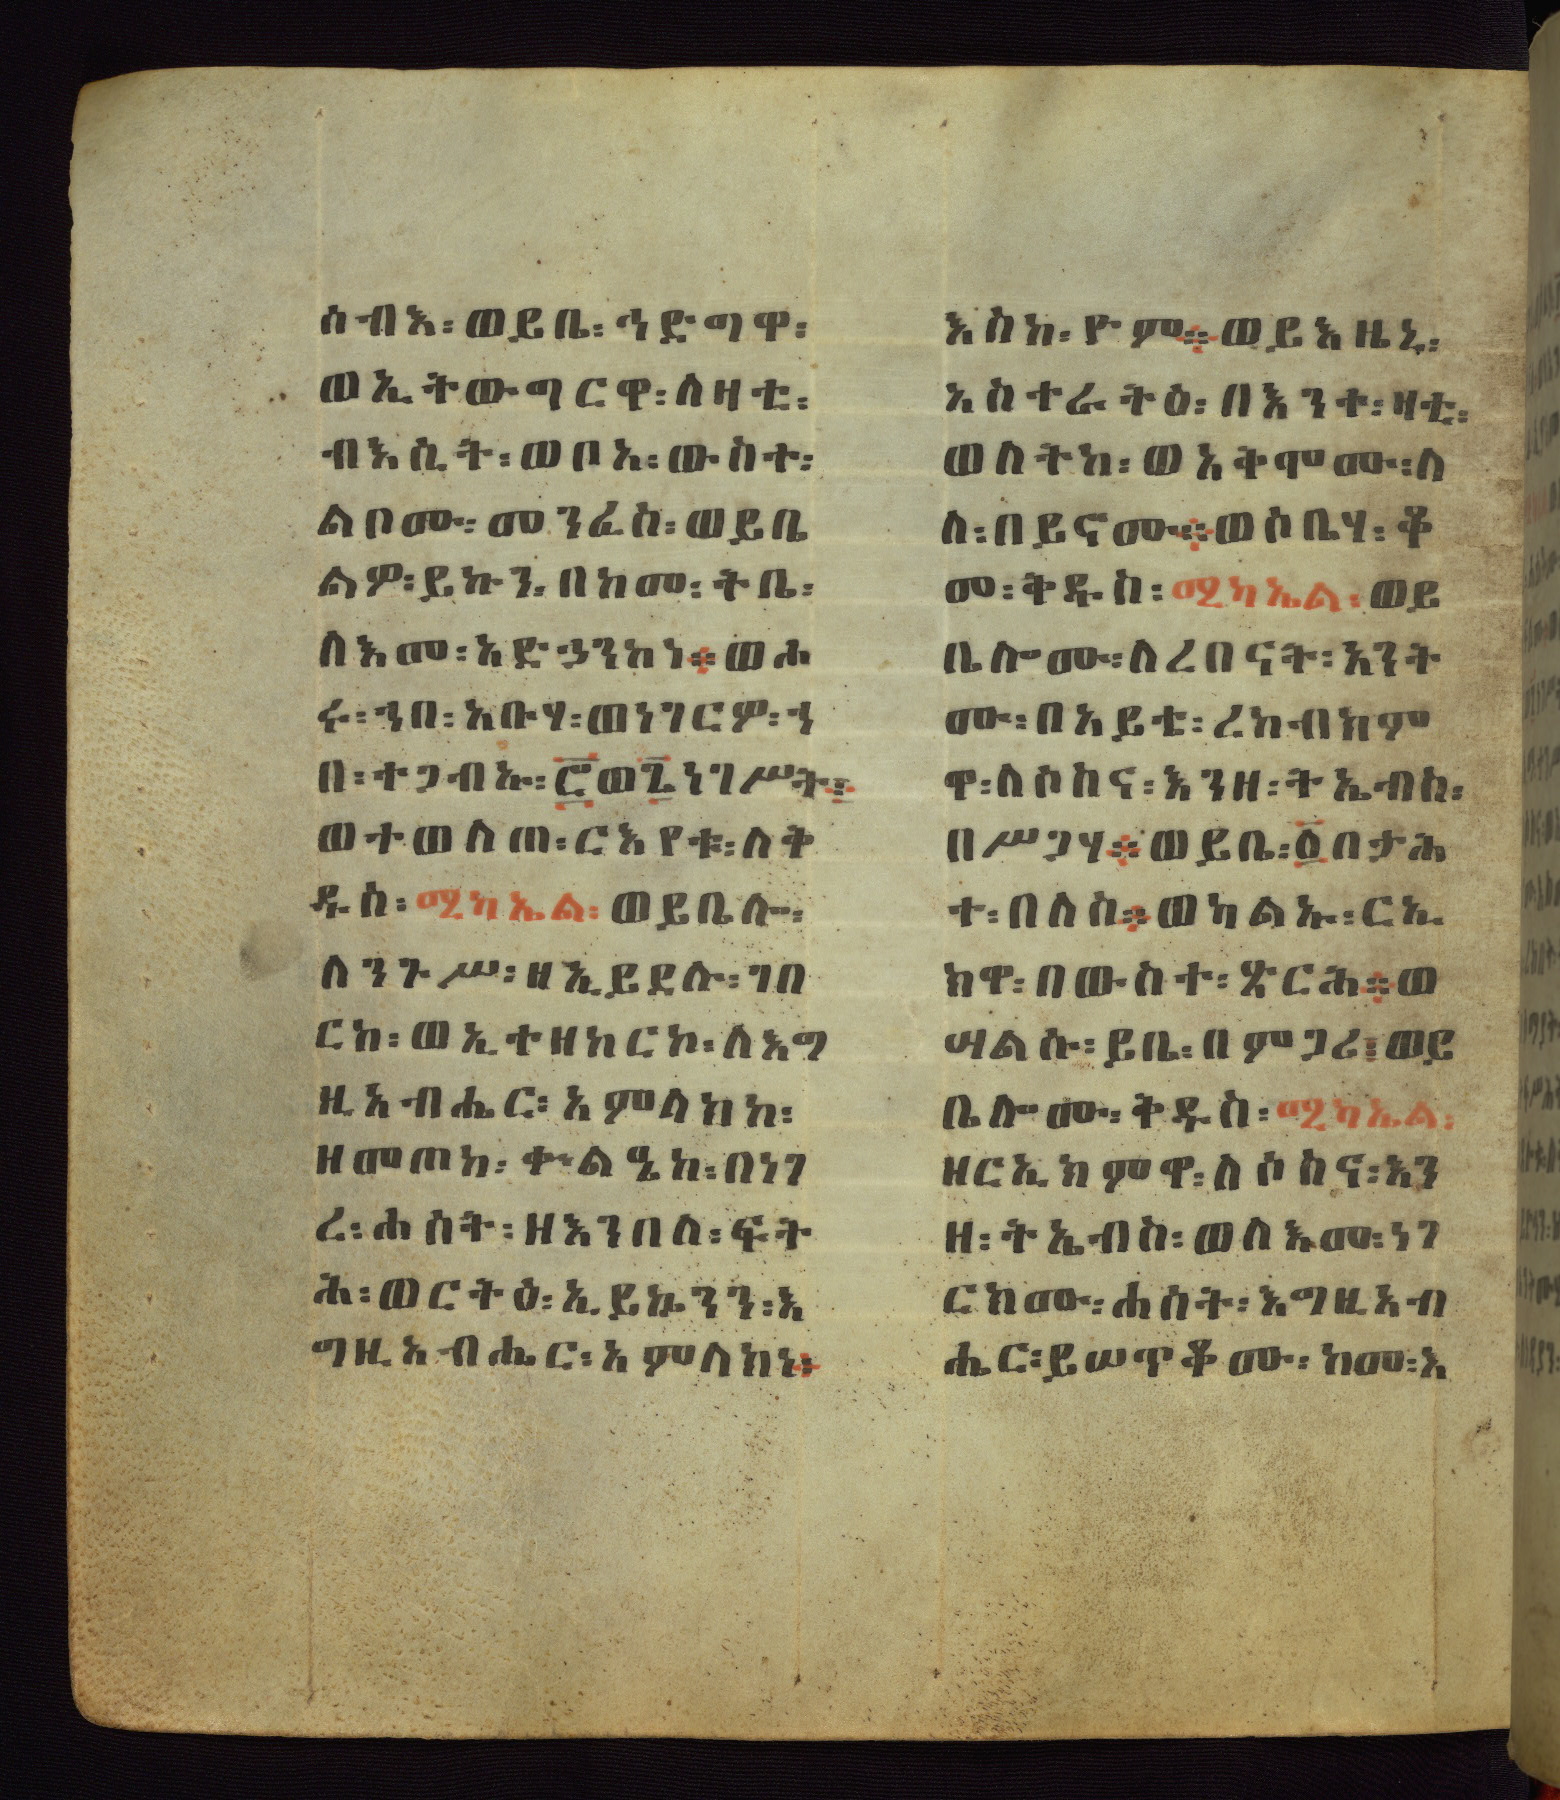 ሰብእ፡ ወይቤ፡ ኅድግዋ፡
ወኢትውግርዋ፡ ለዛቲ፡
ብእሲት፡ ወቦአ፡ ውስተ፡
ልቦሙ፡ መንፈስ፡ ወይቤ
ልዎ፡ ይኩን፡ በከመ፡ ትቤ፡
ለእመ፡ አድኃንከነ። ወሖ
ሩ፡ ኀበ፡ አቡሃ፡ ወነገርዎ፡ ኀ
በ፡ ተጋብኡ፡ ፸ወ፯ነገሥት።
ወተወለጠ፡ ርእየቱ፡ ለቅ
ዱስ፡ ሚካኤል፡ ወይቤሎ፡
ለንጉሥ፡ ዘኢይደሉ፡ ገበ
ርከ፡ ወኢተዘከርኮ፡ ለእግ
ዚአብሔር፡ አምላክከ፡
ዘመጠነ፡ ቀተልዔከ፡ በነገ
ረ፡ ሐሰት፡ ዘእንበለ፡ ፍት
ሕ፡ ወርትዕ፡ ኢይኴንን፡ እ
ግዚአብሔር፡ አምላክነ።
እስከ፡ ዮም። ወይእዜኒ፡
አስተራትዕ፡ በእንተ፡ ዛቲ፡
ወለትከ፡ ወአቅሞሙ፡ ለ
ለ፡ በይናሙ። ወሶቤሃ፡ ቆ
መ፡ ቅዱስ፡ ሚካኤል፡ ወይ
ቤሎሙ፡ ለረበናት፡ አንት
ሙ፡ በአይቴ፡ ረከብክም
ዋ፡ ለሶስና፡ እንዘ፡ ትኤብስ፡
በሥጋሃ። ወይቤ፡ ፩በታሕ
ተ፡ በለስ። ወካልኡ፡ ርኢ
ክዋ፡ በውስተ፡ ጽርሕ። ወ
ሣልሱ፡ ይቤ፡ በምጋሪ። ወይ
ቤሎሙ፡ ቅዱስ፡ ሚካኤል፡
ዘርኢክምዋ፡ ለሶስና፡ እን
ዘ፡ ትኤብስ፡ ወለእመ፡ ነገ
ርክሙ፡ ሐሰት፡ እግዚአብ
ሔር፡ ይሠጥቆሙ፡ ከመ፡ እ